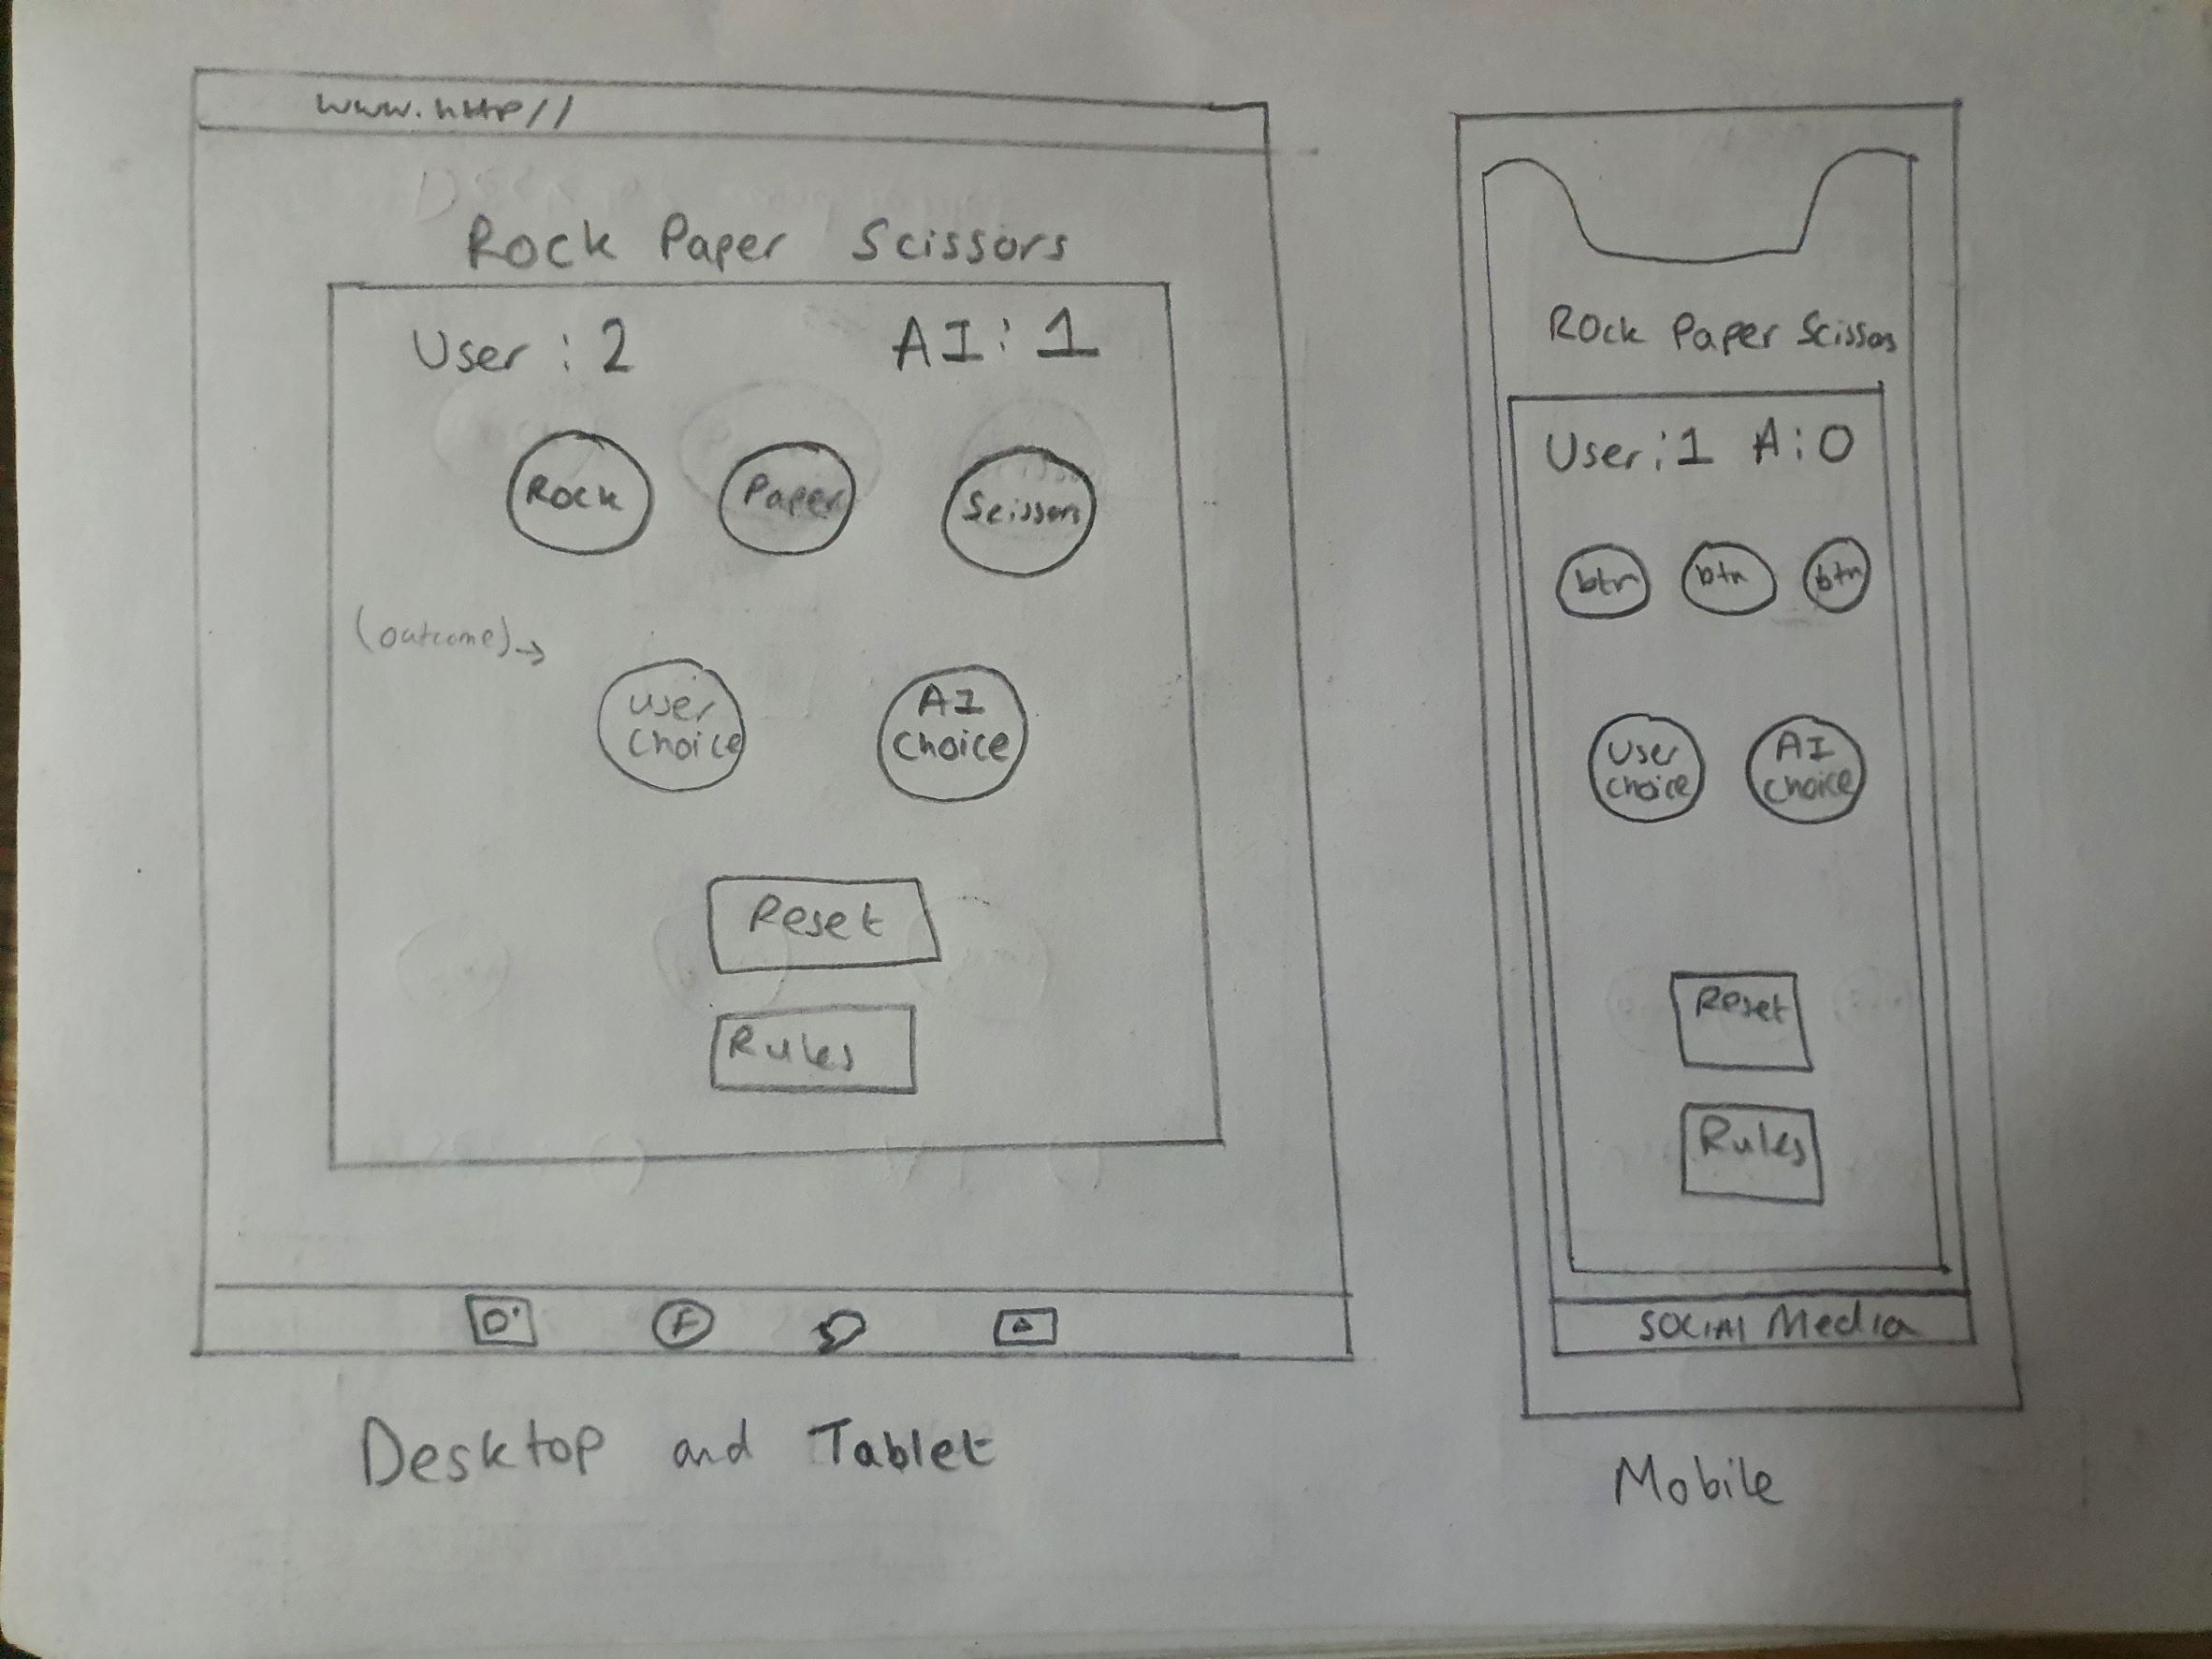 www.http//
Rock Paper Scissors
User : 2 AI : 1
Rock Paper Scissors
(outcome)→
User
Choice
AI
choice
Reset
Rules
F
Desktop and Tablet
Rock Paper Scissors
User : 1 A : 0
btn btn btn
User
choice
AI
choice
Reset
Rules
SOCIAL Media
Mobile